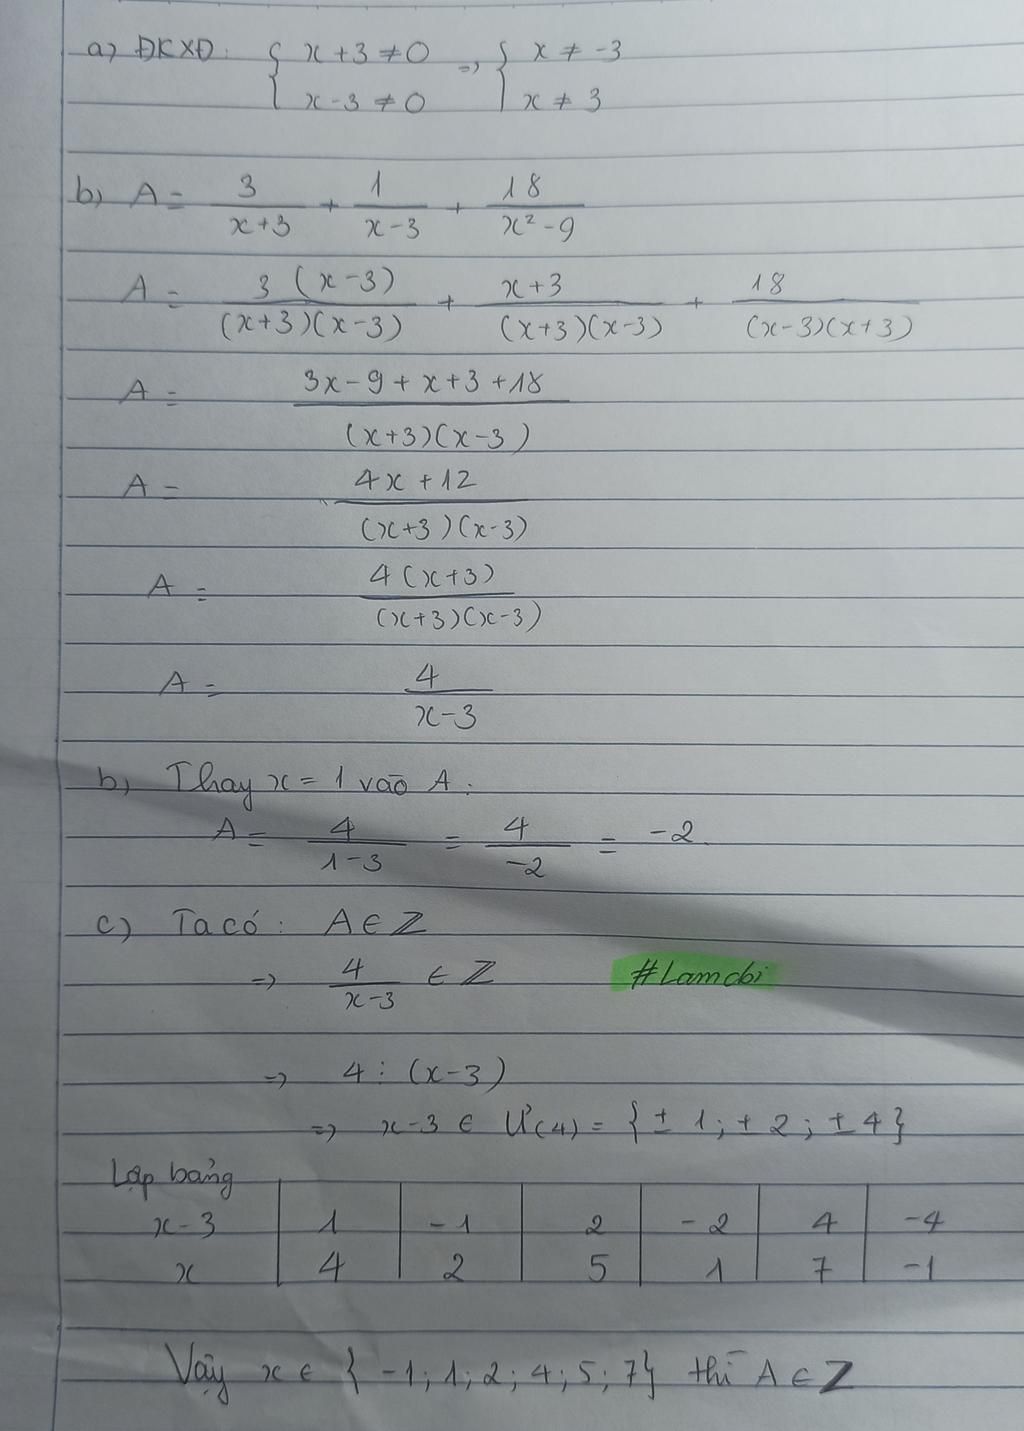 a) ĐKXĐ: { x + 3 ≠ 0 => { x ≠ -3
x - 3 ≠ 0 x ≠ 3
b) A = 3/(x+3) + 1/(x-3) + 18/(x² - 9)
A = 3(x-3)/((x+3)(x-3)) + (x+3)/((x+3)(x-3)) + 18/((x-3)(x+3))
A = (3x - 9 + x + 3 + 18)/((x+3)(x-3))
A = (4x + 12)/((x+3)(x-3))
A = 4(x+3)/((x+3)(x-3))
A = 4/(x-3)
b) Thay x = 1 vào A:
A = 4/(1-3) = 4/(-2) = -2.
c) Ta có: A ∈ Z
=> 4/(x-3) ∈ Z #Lamcbi
=> 4 ⋮ (x-3)
=> x-3 ∈ Ư(4) = {± 1; ± 2; ± 4}
Lập bảng
x-3 | 1 | -1 | 2 | -2 | 4 | -4
x | 4 | 2 | 5 | 1 | 7 | -1
Vậy x ∈ {-1; 1; 2; 4; 5; 7} thì A ∈ Z